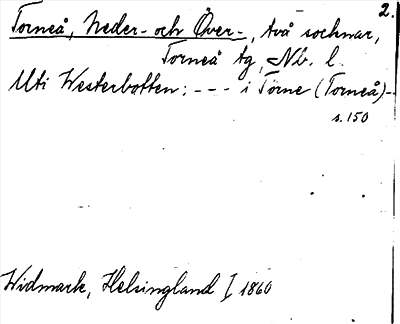 2.
Torneå, Neder- och Över-, två socknar,
Torneå tg, Nb. l.
Uti Westerbotten: --- i Törne (Torneå)--
s. 150
Widmark, Helsingland I 1860